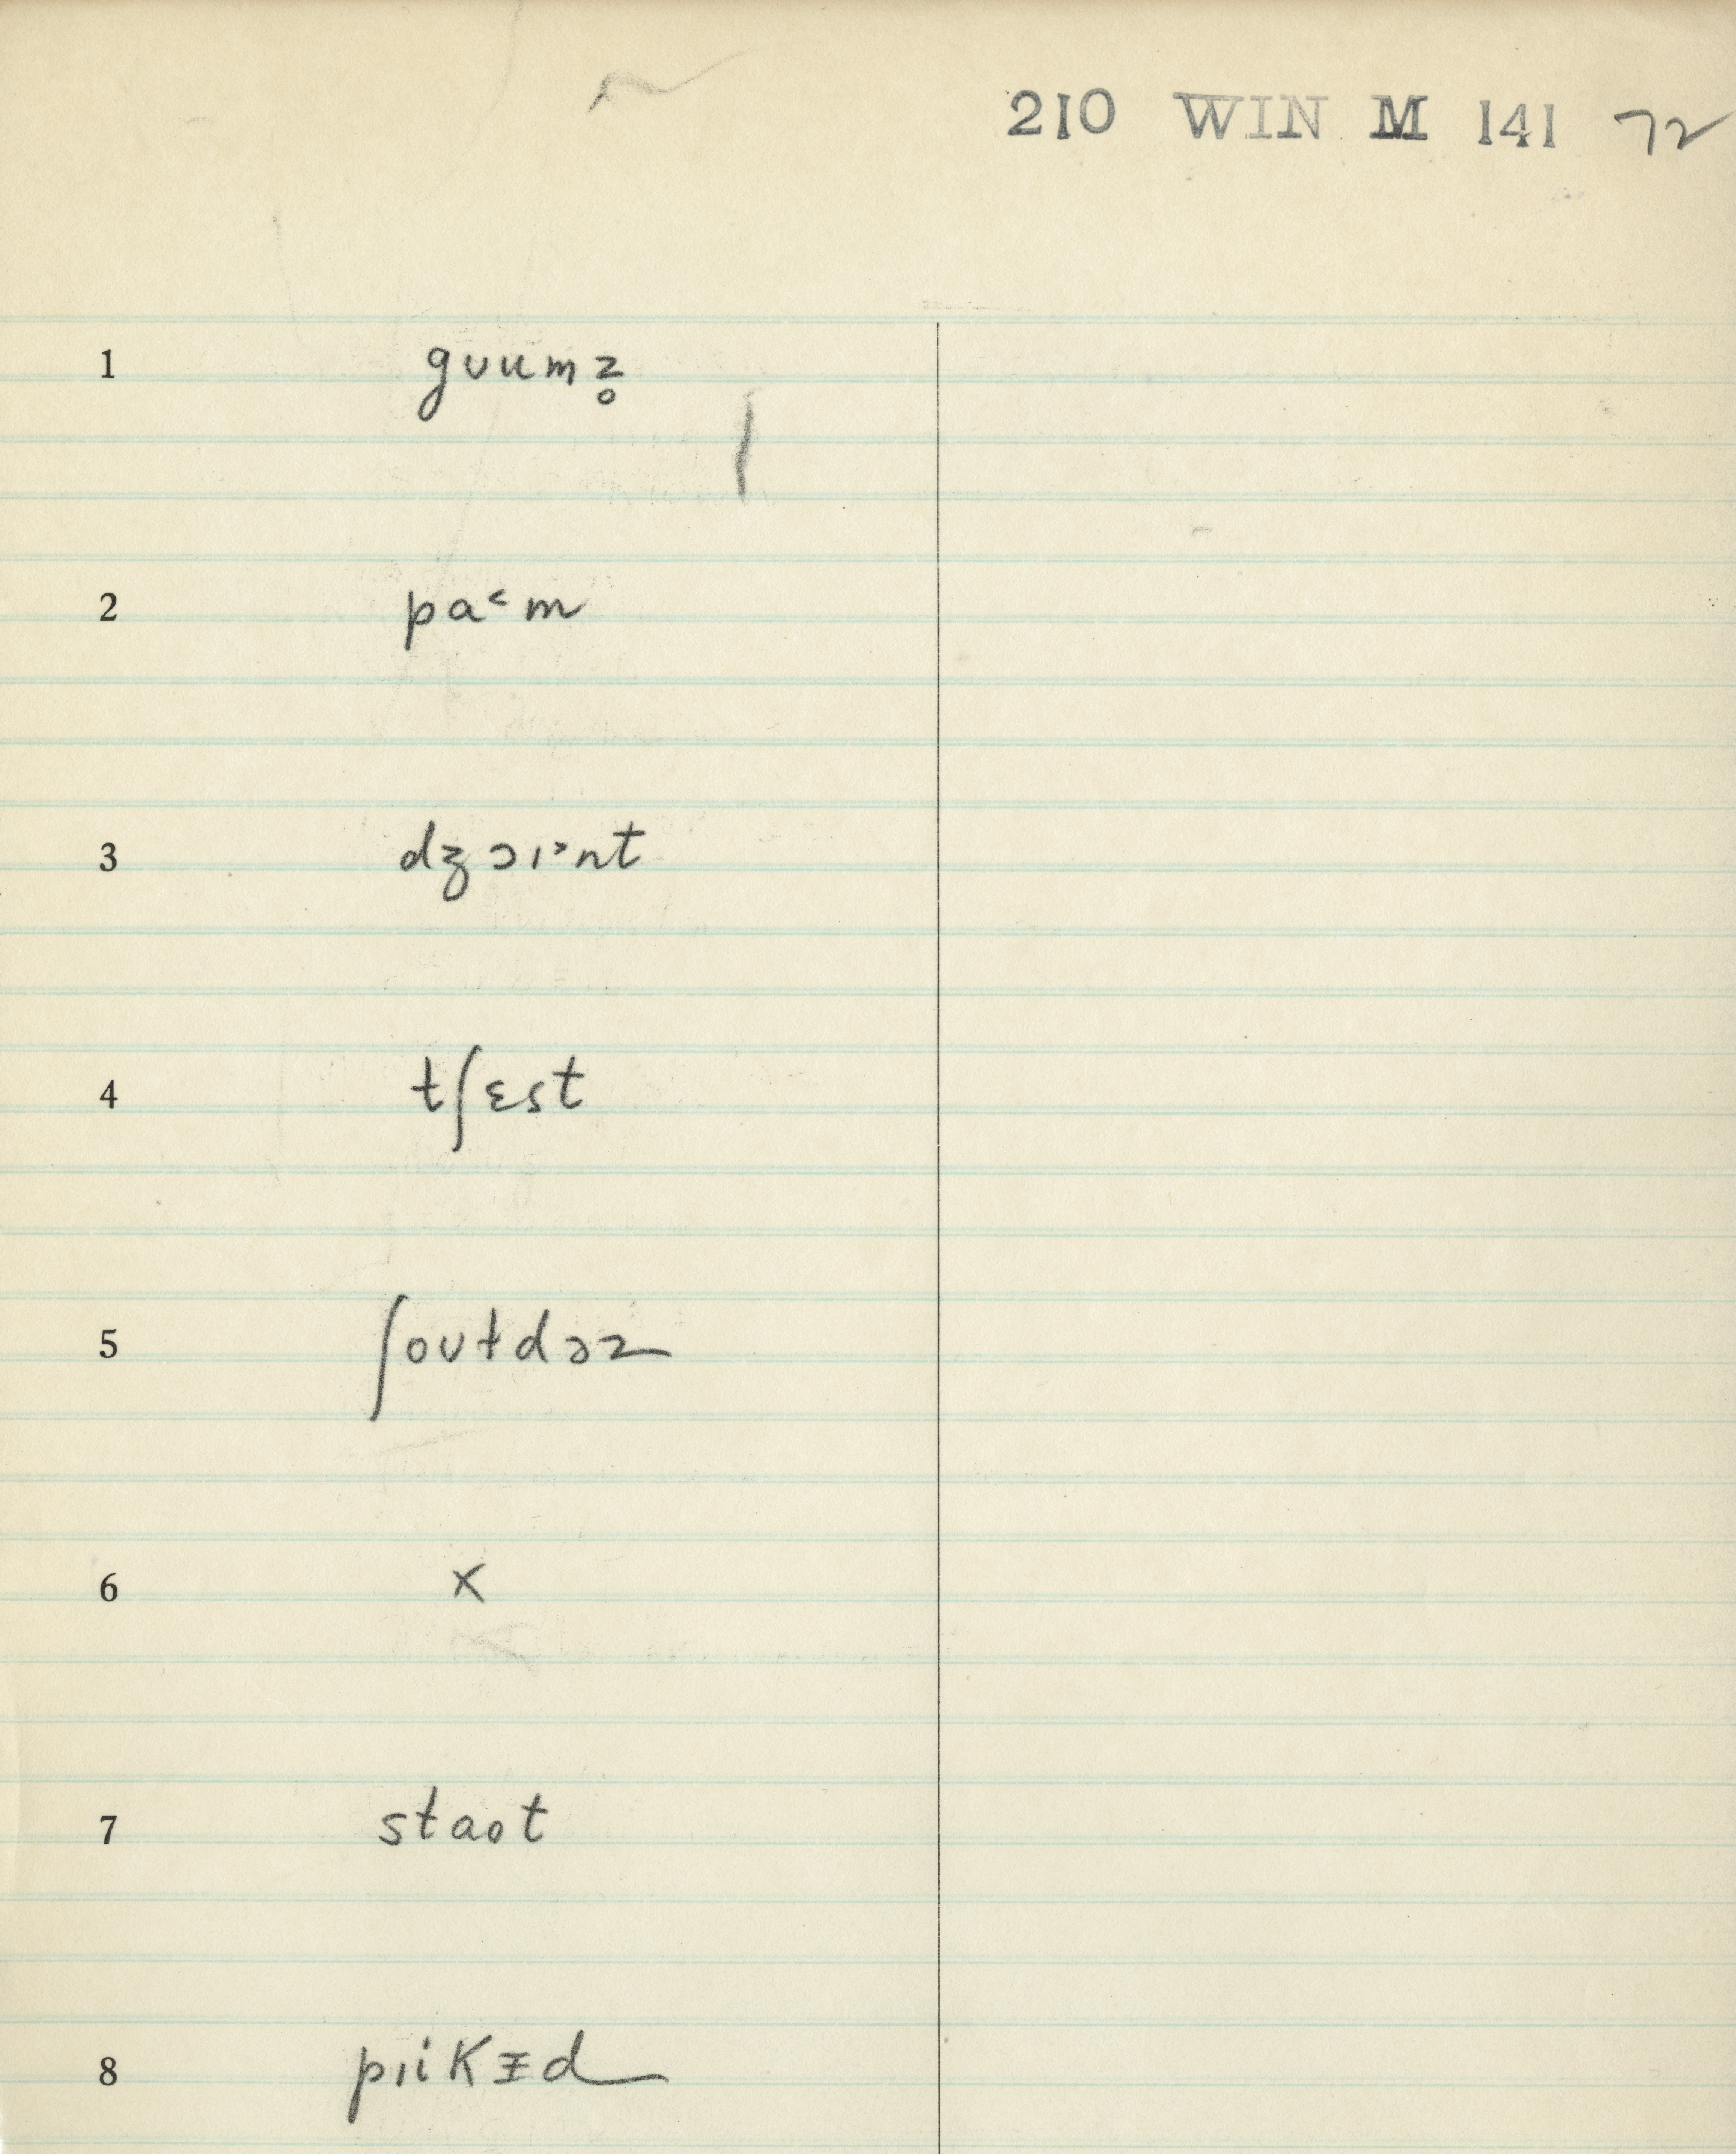 210 WIN M 141 72
1 gʊum̩z̥
2 pa˂m
3 dʒɔɪ˃nt
4 tʃɛst
5 ʃoʊɫdəz
6 x
7 staət
8 pɪikɪ̵d